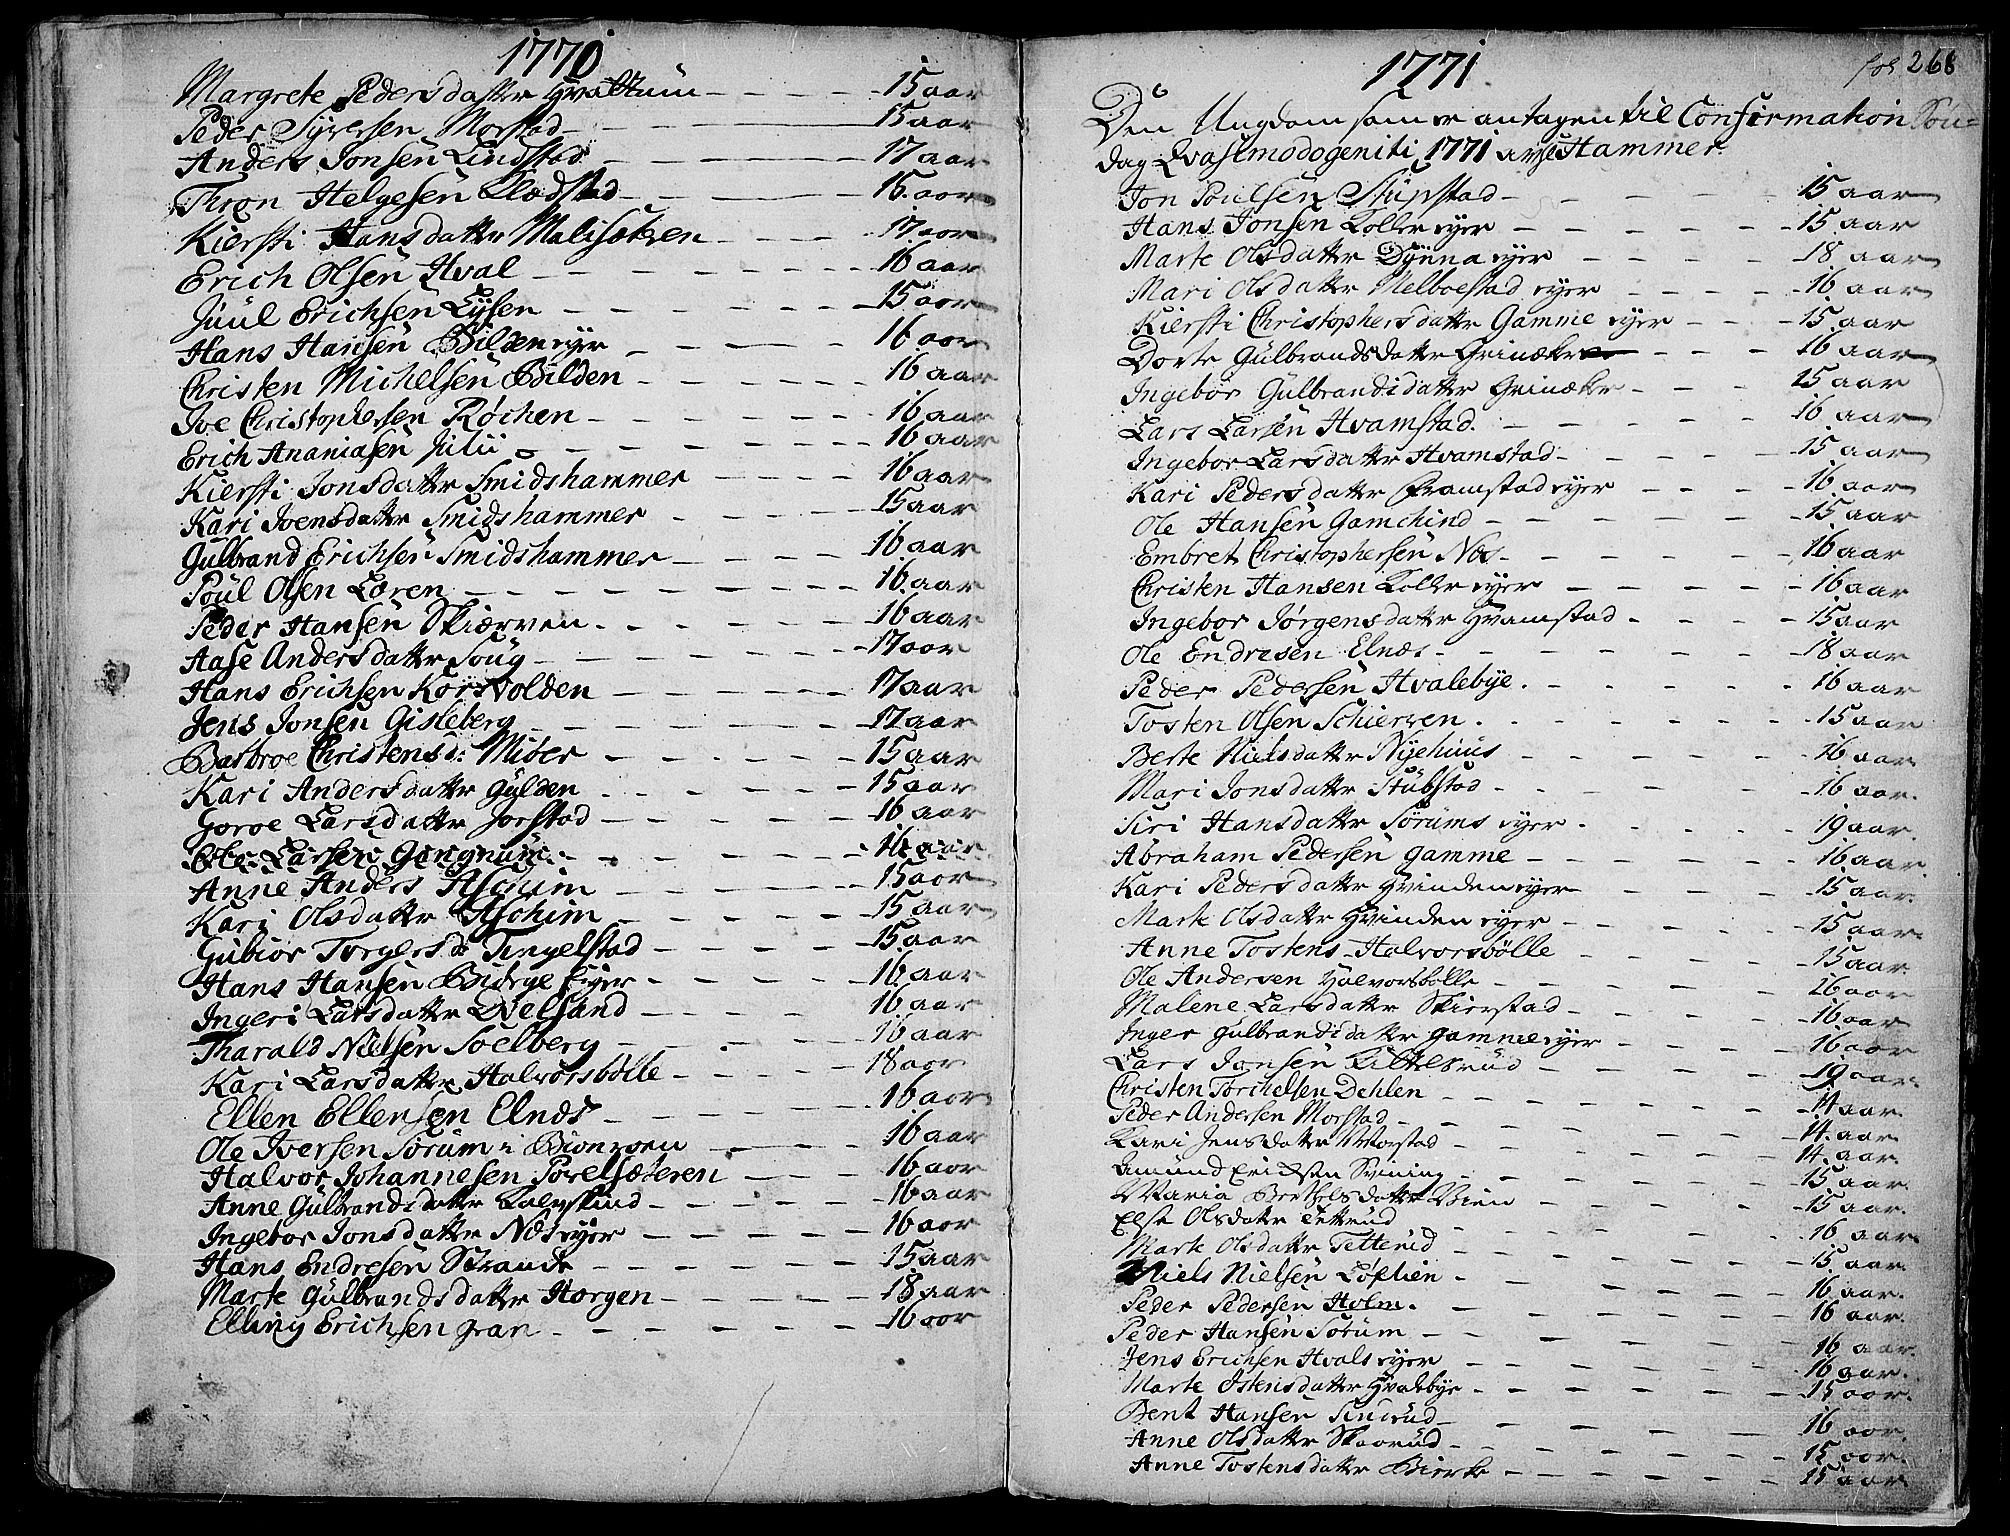 1770
Margrete Pedersdatter Hvattum - - - - 15 aar
Peder Syversen Morstad - - - - 15 aar
Anders Jonsen Lindstad - - - - 17 aar
Thron Helgesen Klædstad - - - - 15. aar
Kiersti Hansdatter Malisæteren - - - - 17. aar
Erich Olsen Hval - - - - 16 aar
Juul Erichsen Lysen - - - - 15 aar
Hans Hansen Bilden eyer - - - - 16 aar
Christen Michelsen Bilden - - - - 16 aar
Ive Christophersen Røchen - - - - 16 aar
Erich Ananiasen - - - - 16 aar
Kiersti Jonsdatter Smidshammer - - - - 16 aar
Kari Ivensdatter Smidshammer - - - - 15 aar
Gulbrand Erichsen Smidshammer - - - - 16 aar
Poul Olsen Loren - - - - 16. aar
Peder Hansen Skiærven - - - - 16 aar
Aase Andersdatter Soug - - - - 17 aar
Hans Erichsen Korsvolden - - - - 17 aar
Jens Jonsen Gisleberg - - - - 17 aar
Barbroe Christensd: Mioer - - - - 15 aar
Kari Andersdatter Gylden - - - - 15 aar
Goroe Larsdatter Jorstad - - - - 16 aar
Ole Larsen Gengnum - - - - 16 aar
Anne Anders Aschim - - - - 15 aar
Kari Olsdatter Aschim - - - - 15 aar
Gubiør Torgersd Tingelstad - - - - 15 aar
Hans Hansen Biørge Eyer - - - - 16 aar
Ingeri Larsdatter Dvelsand - - - - 16 aar
Tharald Nielsen Soelberg - - - - 16 aar
Kari Larsdatter Halvorsbølle - - - - 18 aar
Ellen Ellensen Elnæs - - - - 16 aar
Ole Iversen Sørum i - - - - 16 aar
Halvor Johannesen Povelsæteren - - - - 16 aar
Anne Gulbrandsdatter Kalvskind - - - - 16 aar
Ingebor Jonsdatter Næs eyer - - - - 16 aar
Hans Endresen Strande - - - - 15 aar
Marte Gulbrandsdatter Horgen - - - - 18 aar
Elling Erichsen gran - - - - 16 aar
1771
fol 268
Den Ungdom som er antagen til Confirmation Søn=
dag Qvasimodogeniti 1771 Hammer.
Jon Poulsen Stubstad - - - - 15 aar
Hans Jonsen Koller eyer - - - - 15 aar
Marte Olsdatter Dynna eyer - - - - 18 aar
Mari Olsdatter Melboestad eyer - - - - 16 aar
Kiersti Christophersdatter Gamme eyer - - - 15 aar
Dorte Gulbrandsdatter Grinaker - - - 16 aar
Ingebor Gulbrandsdatter Grinaker - - - 15 aar
Lars Larsen Hvamstad. - - - - 16 aar
Ingebor Larsdatter Hvamstad - - - - 15 aar
Kari Pedersdatter Framstad eyer - - - - 16 aar
Ole Hansen Gamchind - - - - 15 aar
Embret Christophersen Næs - - - - 16 aar
Christen Hansen Koller eyer - - - - 16 aar
Ingebor Jørgensdatter Hvamstad - - - - 15 aar
Ole Endresen Elnæs - - - - 18 aar
Peder Pedersen Hvalebye. - - - - 16 aar
Tosten Olsen Schierven. - - - - 15 aar
Berte Nielsdatter Nyehuus - - - - 16 aar
Mari Jonsdatter Stubstad - - - - 16 aar.
Siri Hansdatter Sørums eyer. - - - - 19 aar.
Abraham Pedersen Gamme - - - - 16 aar.
Kari Pedersdatter Hvinden eyer - - - - 15 aar.
Marte Olsdatter Hvinden eyer - - - - 15 aar.
Anne Tostens-Halvorsbølle - - - - 15 aar
Ole Andersen Halvorsbølle - - - - 16 aar
Malene Larsdatter Skierstad - - - - 16 aar
Inger Gulbrandsdatter Gamme eyer - - - - 16 aar
Lars Jonsen Kittelsrud - - - - 19 aar.
Christen Torchelsen Dehlen - - - - 14 aar.
Peder Andersen Morstad - - - - 14. aar
Kari Jensdatter Morstad - - - - 14. aar.
Amund Erichsen - - - - 15 aar.
Maria Berthelsdatter Vien - - - - 15 aar.
Else Olsdatter Tetterud - - - - 16 aar.
Marte Olsdatter Tetterud - - - - 15 aar.
Niels Nielsen Løchen - - - - 16 aar.
Peder Pedersen Holm. - - - - 16 aar.
Peder Hansen Sørum - - - - 16 aar.
Jens Erichsen Hvals eyer - - - - 16 aar.
Marte Ostensdatter Hvalebye - - - - 15 aar.
Bent Hansen Sindrud - - - - 16 aar.
Anne Olsdatter Skoorud - - - - 15 aar.
Anne Tostensdatter Bierke - - - - 15 aar